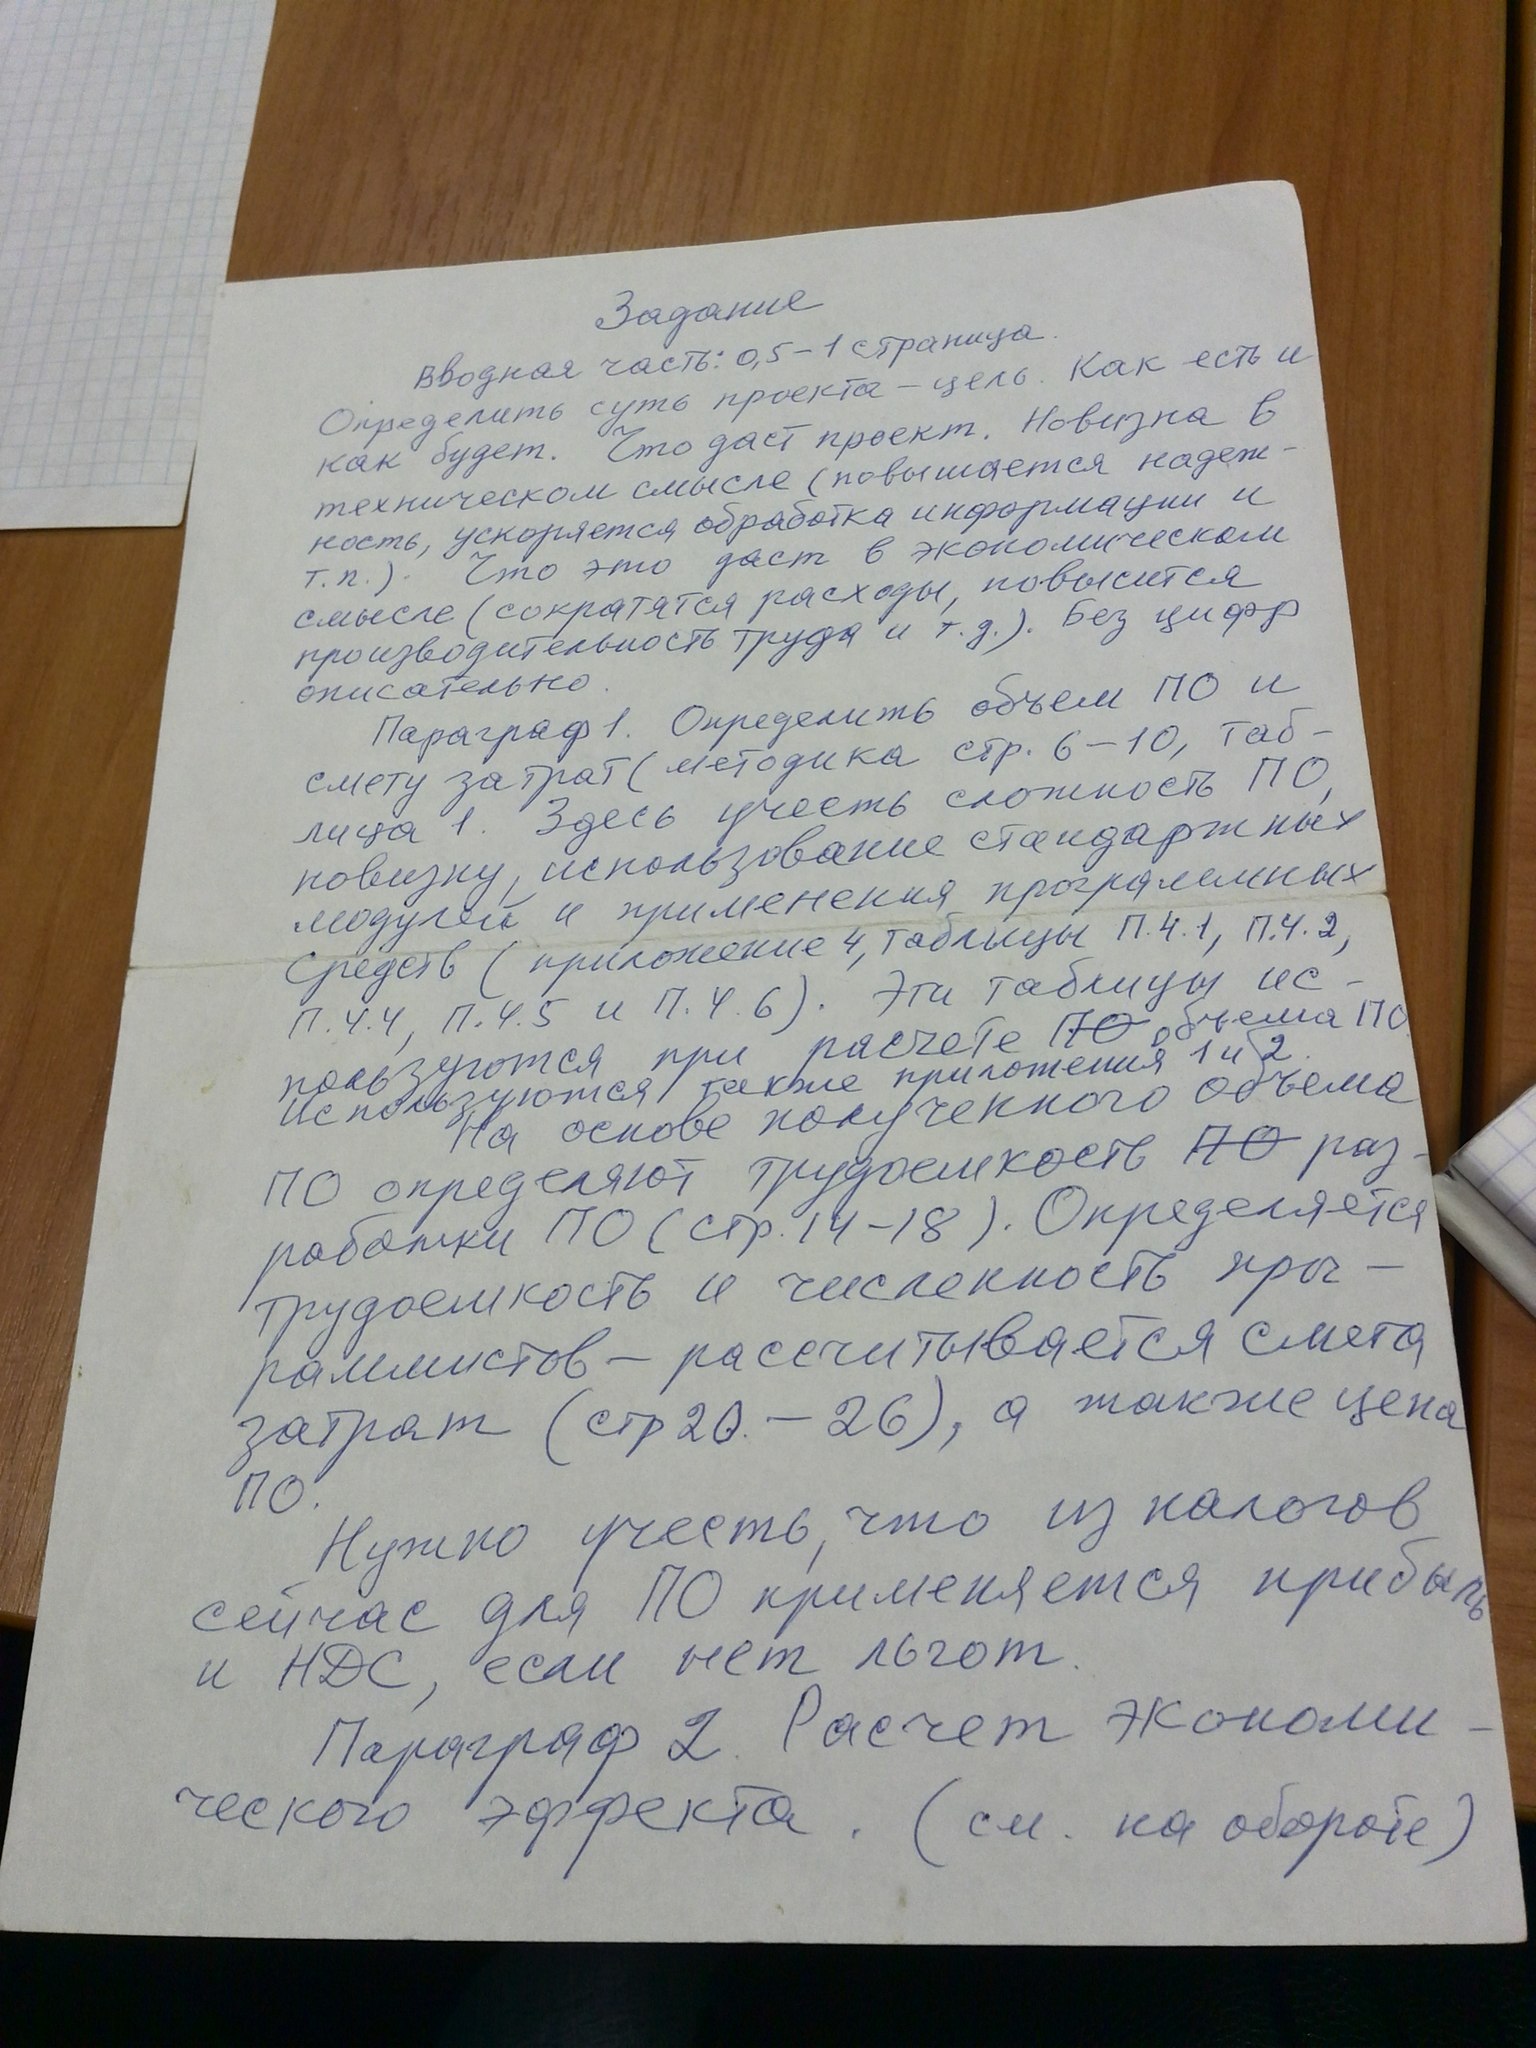 Задание
Вводная часть: 0,5-1 страница.
Определить суть проекта - цель. Как есть и
как будет. Что даст проект. Новизна в
техническом смысле (повышается надеж-
ность, ускоряется обработка информации и
т.п.). Что это даст в экономическом
смысле (сократятся расходы, повысится
производительность труда и т.д.). Без цифр
описательно.
Параграф 1. Определить объем ПО и
смету затрат (методика стр. 6-10, таб-
лица 1. Здесь учесть сложность ПО,
новизну, использование стандартных
модулей и применения программных
средств (приложение 4, таблицы П.4.1, П.4.2,
П.4.4, П.4.5 и П.4.6). Эти таблицы ис-
пользуются при расчете ПО объема ПО
Используются также приложения 1 и 2.
На основе полученного объема
ПО определяют трудоемкость ПО раз-
работки ПО (стр. 14-18). Определяется
трудоемкость и численность прог-
раммистов - рассчитывается смета
затрат (стр 20. - 26), а также цена
ПО.
Нужно учесть, что из налогов
сейчас для ПО применяется прибыль
и НДС, если нет льгот.
Параграф 2. Расчет экономи-
ческого эффекта. (см. на обороте)